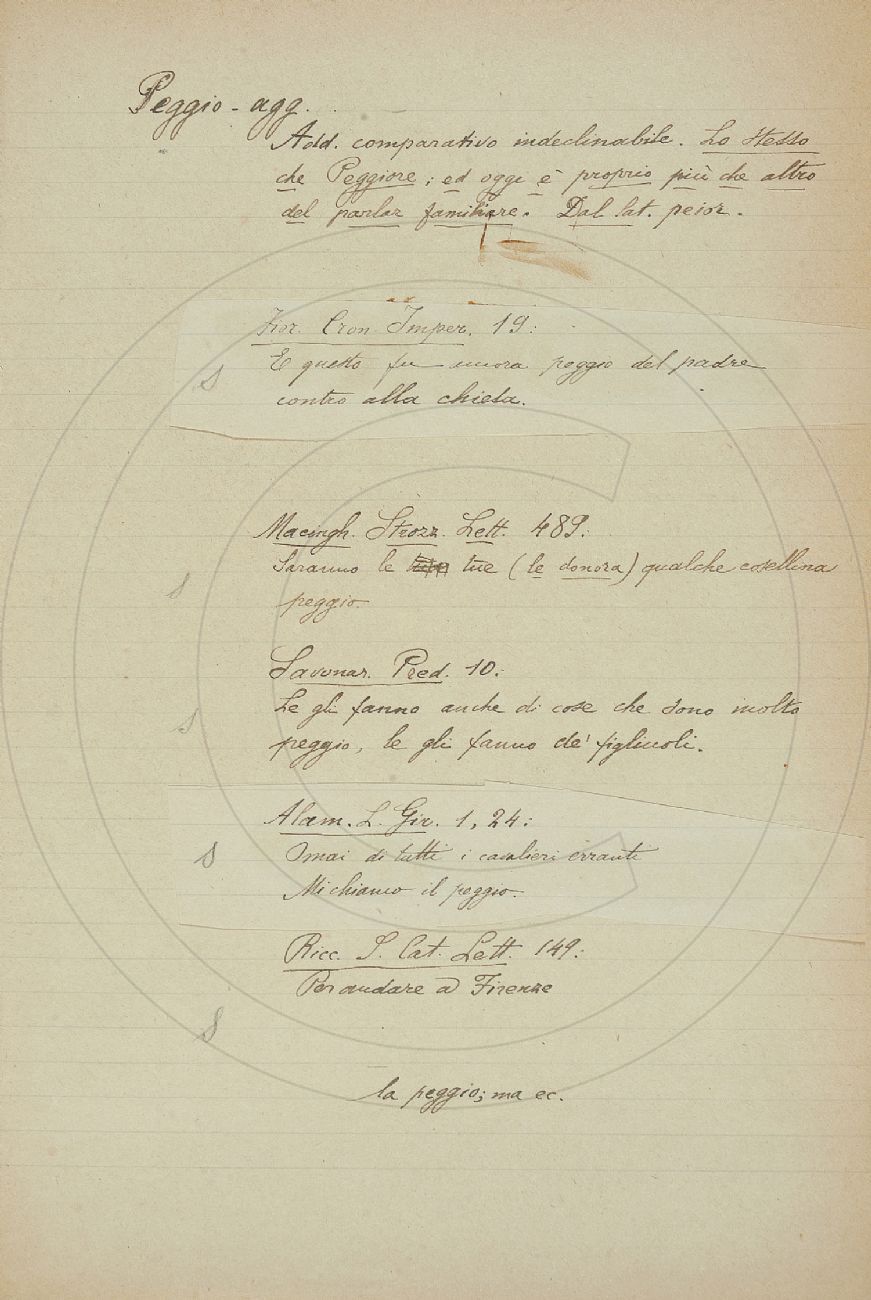 Peggio - agg.
Add. comparativo indeclinabile. Lo stesso
che Peggiore; ed oggi è proprio più che altro
del parlar familiare. Dal lat. peior.
Fior. Cron. Imper. 19:
E questo fu ancora peggio del padre
contro alla chiesa.
S
Macingh. Strozz. Lett. 489:
Saranno le tue (le donora) qualche cosellina
peggio.
S
Savonar. Pred. 10:
Le gli fanno anche di cose che sono molto
peggio, le gli fanno de' figliuoli.
S
Alam. L. Gir. 1, 24:
Omai di tutti i cavalieri erranti
Mi chiamo il peggio.
S
Ricc. S. Cat. Lett. 149:
Per andare a Firenze
S
la peggio; ma ec.